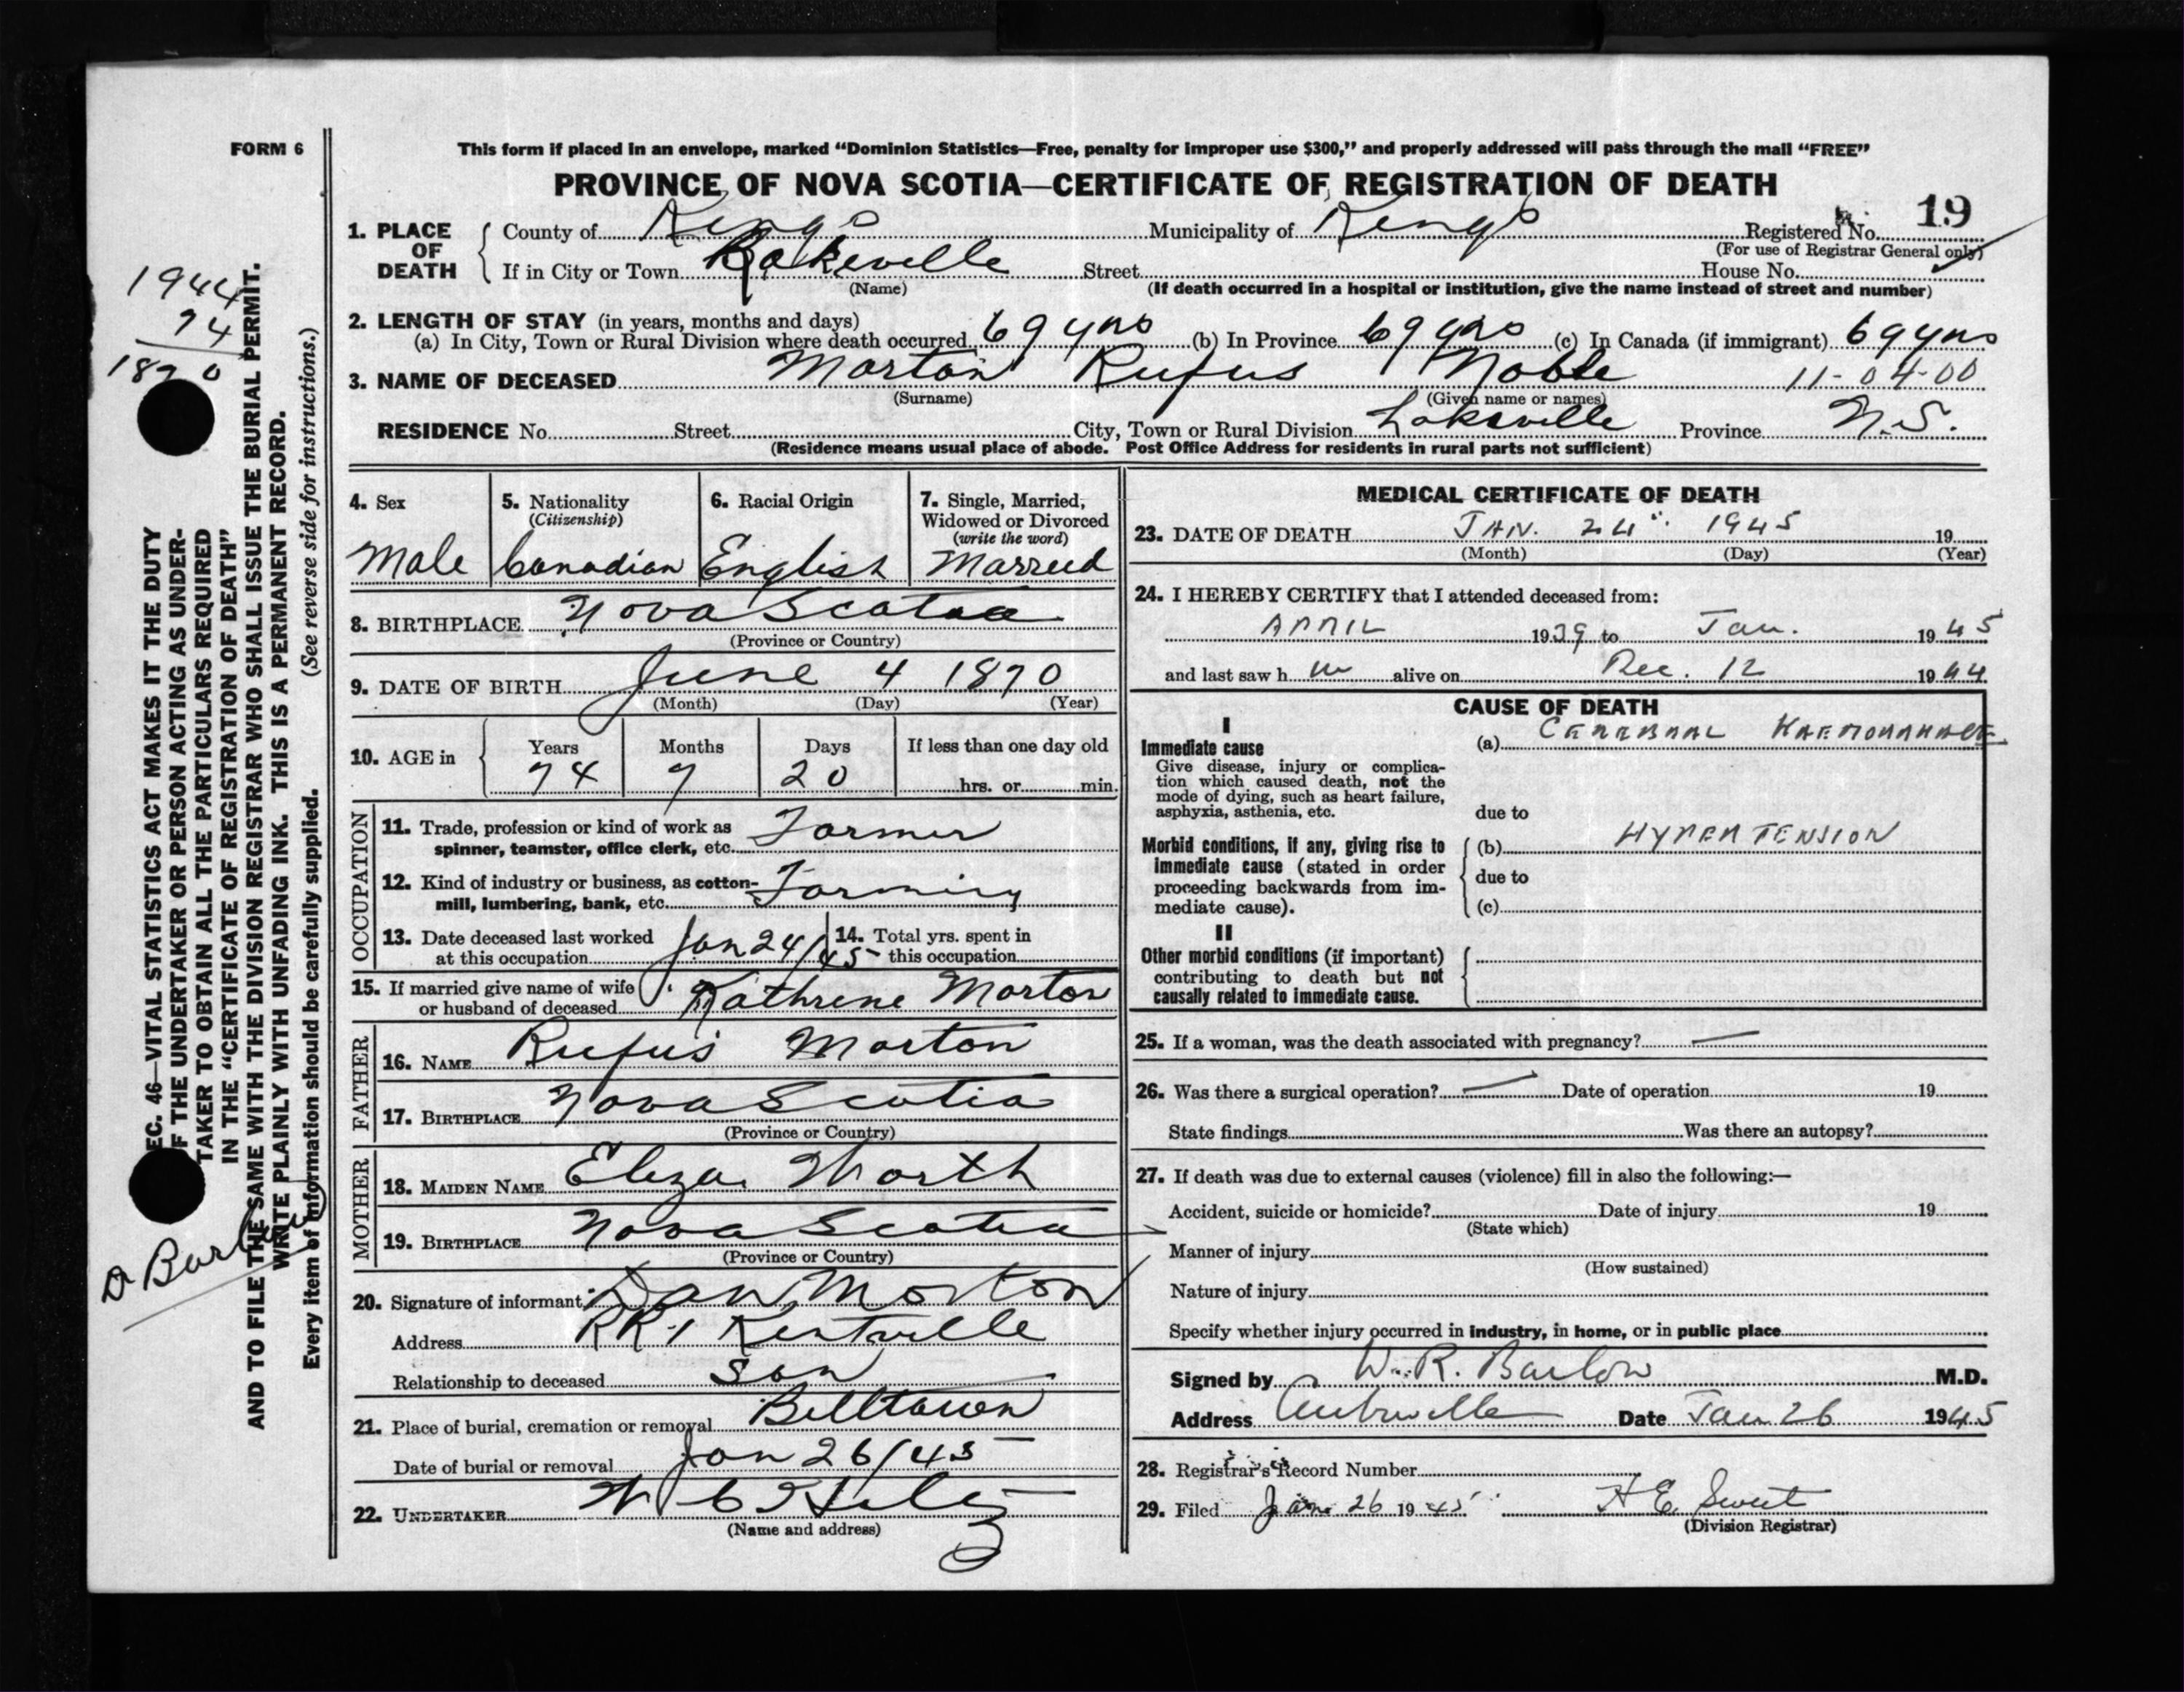 FORM 6
This form if placed in an envelope, marked "Dominion Statistics—Free, penalty for improper use $300," and properly addressed will pass through the mail "FREE"
PROVINCE OF NOVA SCOTIA—CERTIFICATE OF REGISTRATION OF DEATH
19
1. PLACE OF DEATH County of Kings Municipality of Kings Registered No.
(For use of Registrar General only)
If in City or Town Street House No.
(Name) (If death occurred in a hospital or institution, give the name instead of street and number)
2. LENGTH OF STAY (in years, months and days)
(a) In City, Town or Rural Division where death occurred 69 yrs (b) In Province 69 yrs (c) In Canada (if immigrant) 69 yrs
3. NAME OF DECEASED Morton Rufus Noble 11-04-00
(Surname) (Given name or names)
RESIDENCE No. Street City, Town or Rural Division Lakeville Province N.S.
(Residence means usual place of abode. Post Office Address for residents in rural parts not sufficient)
4. Sex
Male
5. Nationality
(Citizenship)
Canadian
6. Racial Origin
English
7. Single, Married,
Widowed or Divorced
(write the word)
Married
8. BIRTHPLACE Nova Scotia
(Province or Country)
9. DATE OF BIRTH June 4 1870
(Month) (Day) (Year)
10. AGE in Years Months Days If less than one day old
74 7 20 hrs. or min.
OCCUPATION
11. Trade, profession or kind of work as
spinner, teamster, office clerk, etc. Farmer
12. Kind of industry or business, as cotton-
mill, lumbering, bank, etc. Farming
13. Date deceased last worked
at this occupation Jan 24/45
14. Total yrs. spent in
this occupation
15. If married give name of wife
or husband of deceased Kathrene Morton
FATHER
16. NAME Rufus Morton
17. BIRTHPLACE Nova Scotia
(Province or Country)
MOTHER
18. MAIDEN NAME Eliza
19. BIRTHPLACE Nova Scotia
(Province or Country)
20. Signature of informant Dan Morton
Address RR1 Kentville
Relationship to deceased Son
21. Place of burial, cremation or removal Billtown
Date of burial or removal Jan 26/45
22. UNDERTAKER
(Name and address)
MEDICAL CERTIFICATE OF DEATH
23. DATE OF DEATH JAN. 24 1945 19
(Month) (Day) (Year)
24. I HEREBY CERTIFY that I attended deceased from:
APRIL 1939 to Jan. 1945
and last saw h im alive on Dec. 12 1944
CAUSE OF DEATH
I
Immediate cause
Give disease, injury or complica-
tion which caused death, not the
mode of dying, such as heart failure,
asphyxia, asthenia, etc.
(a) CEREBRAL HAEMORRHAGE
due to
Morbid conditions, if any, giving rise to
immediate cause (stated in order
proceeding backwards from im-
mediate cause).
(b) HYPERTENSION
due to
(c)
II
Other morbid conditions (if important)
contributing to death but not
causally related to immediate cause.
25. If a woman, was the death associated with pregnancy? —
26. Was there a surgical operation? — Date of operation 19
State findings Was there an autopsy?
27. If death was due to external causes (violence) fill in also the following:—
Accident, suicide or homicide? Date of injury 19
(State which)
Manner of injury
(How sustained)
Nature of injury
Specify whether injury occurred in industry, in home, or in public place
Signed by W. R. Barlow M.D.
Address Date Jan 26 1945
28. Registrar's Record Number
29. Filed Jan 26 1945 H E Sweet
(Division Registrar)
1944
74
1870
EC. 46—VITAL STATISTICS ACT MAKES IT THE DUTY
F THE UNDERTAKER OR PERSON ACTING AS UNDER-
TAKER TO OBTAIN ALL THE PARTICULARS REQUIRED
IN THE "CERTIFICATE OF REGISTRATION OF DEATH"
AND TO FILE THE SAME WITH THE DIVISION REGISTRAR WHO SHALL ISSUE THE BURIAL PERMIT.
WRITE PLAINLY WITH UNFADING INK. THIS IS A PERMANENT RECORD.
Every item of information should be carefully supplied. (See reverse side for instructions.)